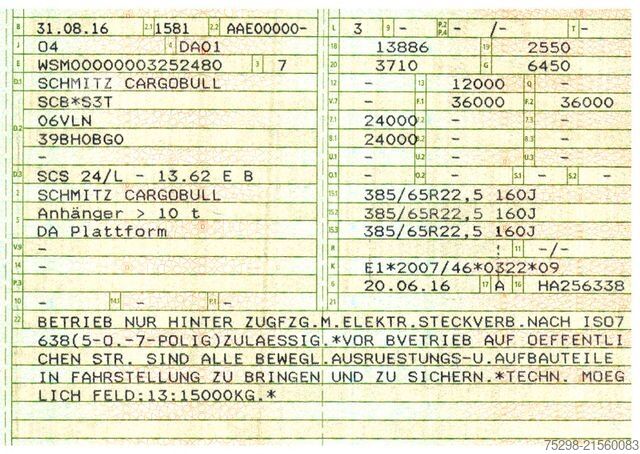 B 31.08.16 2.1 1581 2.2 AAE00000- L 3 9 - P.2 P.4 - /- T -
J 04 4 DA01 18 13886 19 2550
E WSM00000003252480 3 7 20 3710 G 6450
D.1 SCHMITZ CARGOBULL 12 - 13 12000 Q -
SCB*S3T V.7 - F.1 36000 F.2 36000
D.2 06VLN 7.1 24000 7.2 - 7.3 -
39BH0BG0 8.1 24000 8.2 - 8.3 -
- U.1 - U.2 - U.3 -
D.3 SCS 24/L - 13.62 E B O.1 - O.2 - S.1 - S.2 -
2 SCHMITZ CARGOBULL 15.1 385/65R22,5 160J
5 Anhänger > 10 t 15.2 385/65R22,5 160J
DA Plattform 15.3 385/65R22,5 160J
V.9 - R 11 -/-
14 - K E1*2007/46*0322*09
P.3 6 20.06.16 17 A 16 HA256338
10 - P.1 - 21
22 BETRIEB NUR HINTER ZUGFZG.M.ELEKTR.STECKVERB.NACH ISO7
638(5-O.-7-POLIG)ZULAESSIG.*VOR BVETRIEB AUF OEFFENTLI
CHEN STR. SIND ALLE BEWEGL.AUSRUESTUNGS-U.AUFBAUTEILE
IN FAHRSTELLUNG ZU BRINGEN UND ZU SICHERN.*TECHN. MOEG
LICH FELD:13:15000KG.*
75298-21560083